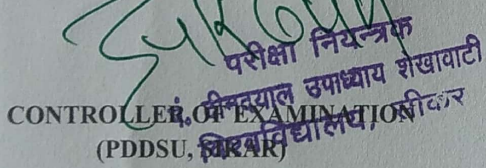 परीक्षा नियन्त्रक
पं. दीनदयाल उपाध्याय शेखावाटी
विश्वविद्यालय, सीकर
CONTROLLER OF EXAMINATION
(PDDSU, SIKAR)